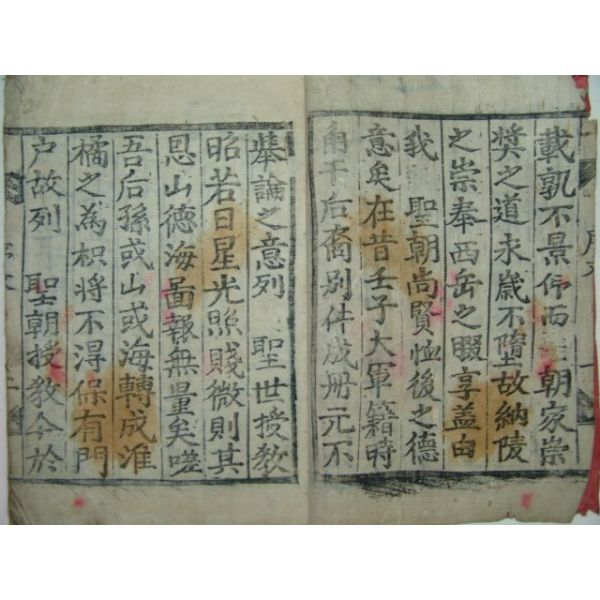 載孰不景仰而 朝家崇
獎之道永歲不墮故納陵
之崇奉西岳之腏享盖由
我 聖朝尚賢恤後之德
意矣在昔壬子大軍籍時
角干后裔別件成册元不
舉論之意列 聖世授教
昭若日星光照賤微則其
恩山德海啚報無量矣嗟
吾后孫或山或海轉成淮
橘之為枳將不淂保有門
戶故列 聖朝授教今於